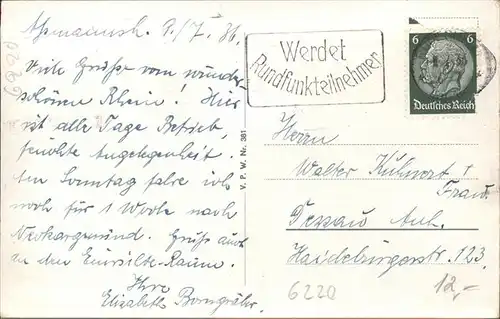 6220
Viele Grüße vom wunder-
schönen Rhein! Hier
ist alle Tage Betrieb,
feuchte Angelegenheit.
Sonntag fahre ich
noch für 1 Woche nach
Neckargemünd. Gruß auch
an den
Ihre
Elisabeth
Werdet
Rundfunkteilnehmer
6 6
Deutsches Reich
V. P. W. Nr. 381
Herrn
Walter Kühnert u.
Frau.
Dessau Anh.
Haideburgerstr. 123.
6220
12,-